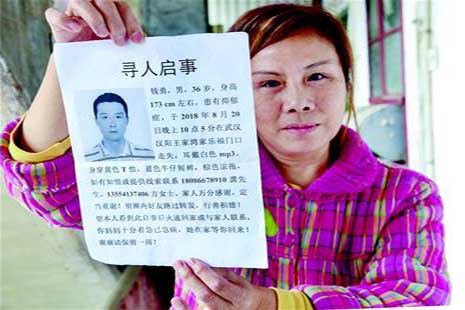 寻人启事
钱勇，男，36岁，身高
173 cm 左右，患有抑郁
症，于 2018 年 8 月 20
日晚上 10 点 5 分在武汉
汉阳王家湾家乐福门口
走失，耳戴白色 mp3，
身穿黄色 T 恤，蓝色牛仔短裤，棕色运拖。
如有知情或提供线索联系 18086678910 龚先
生，13554137406 万女士，家人万分感谢，定
当重谢！望圈内好友路过转发，行善积德！
望本人看到此启事后火速回家或与家人联系，
你妈妈十分着急已急病，她在家等你回来！
谢谢请保留一周！